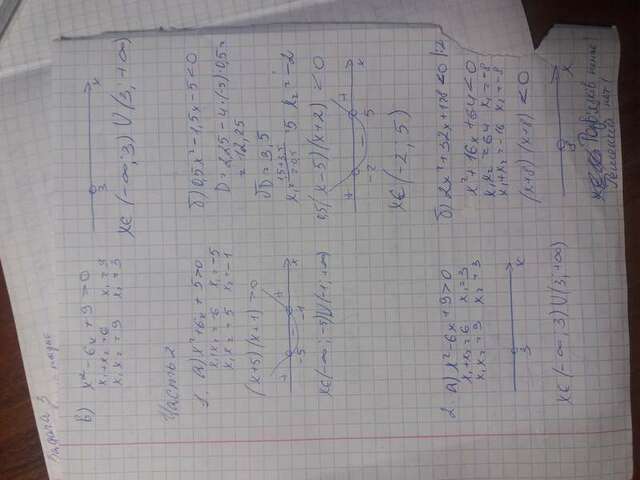 Задача 3
в) x² - 6x + 9 > 0
x₁ + x₂ = 6 x₁ = 3
x₁ x₂ = 9 x₂ = 3
3 x
x∈ (-∞; 3) ∪ (3; +∞)
Часть 2
1. а) x² + 6x + 5 > 0
x₁ + x₂ = -6 x₁ = -5
x₁ x₂ = 5 x₂ = -1
(x+5)(x+1) > 0
+ - +
-5 -1 x
x∈(-∞; -5)∪(-1; +∞)
б) 0,5x² - 1,5x - 5 < 0
D = 2,25 - 4·(-5)·0,5 =
= 12,25
√D = 3,5
5 x₂ = -2
0,5(x-5)(x+2) < 0
+ - +
-2 5 x
x∈(-2; 5)
2. а) x² - 6x + 9 > 0
x₁ + x₂ = 6 x₁ = 3
x₁ x₂ = 9 x₂ = 3
3 x
x∈(-∞; 3)∪(3; +∞)
б) 2x² + 32x + 128 < 0 |:2
x² + 16x + 64 < 0
x₁ x₂ = 64 x₁ = -8
x₁ + x₂ = -16 x₂ = -8
(x+8)(x+8) < 0
x
Розв'язків немає!
Решений нет!